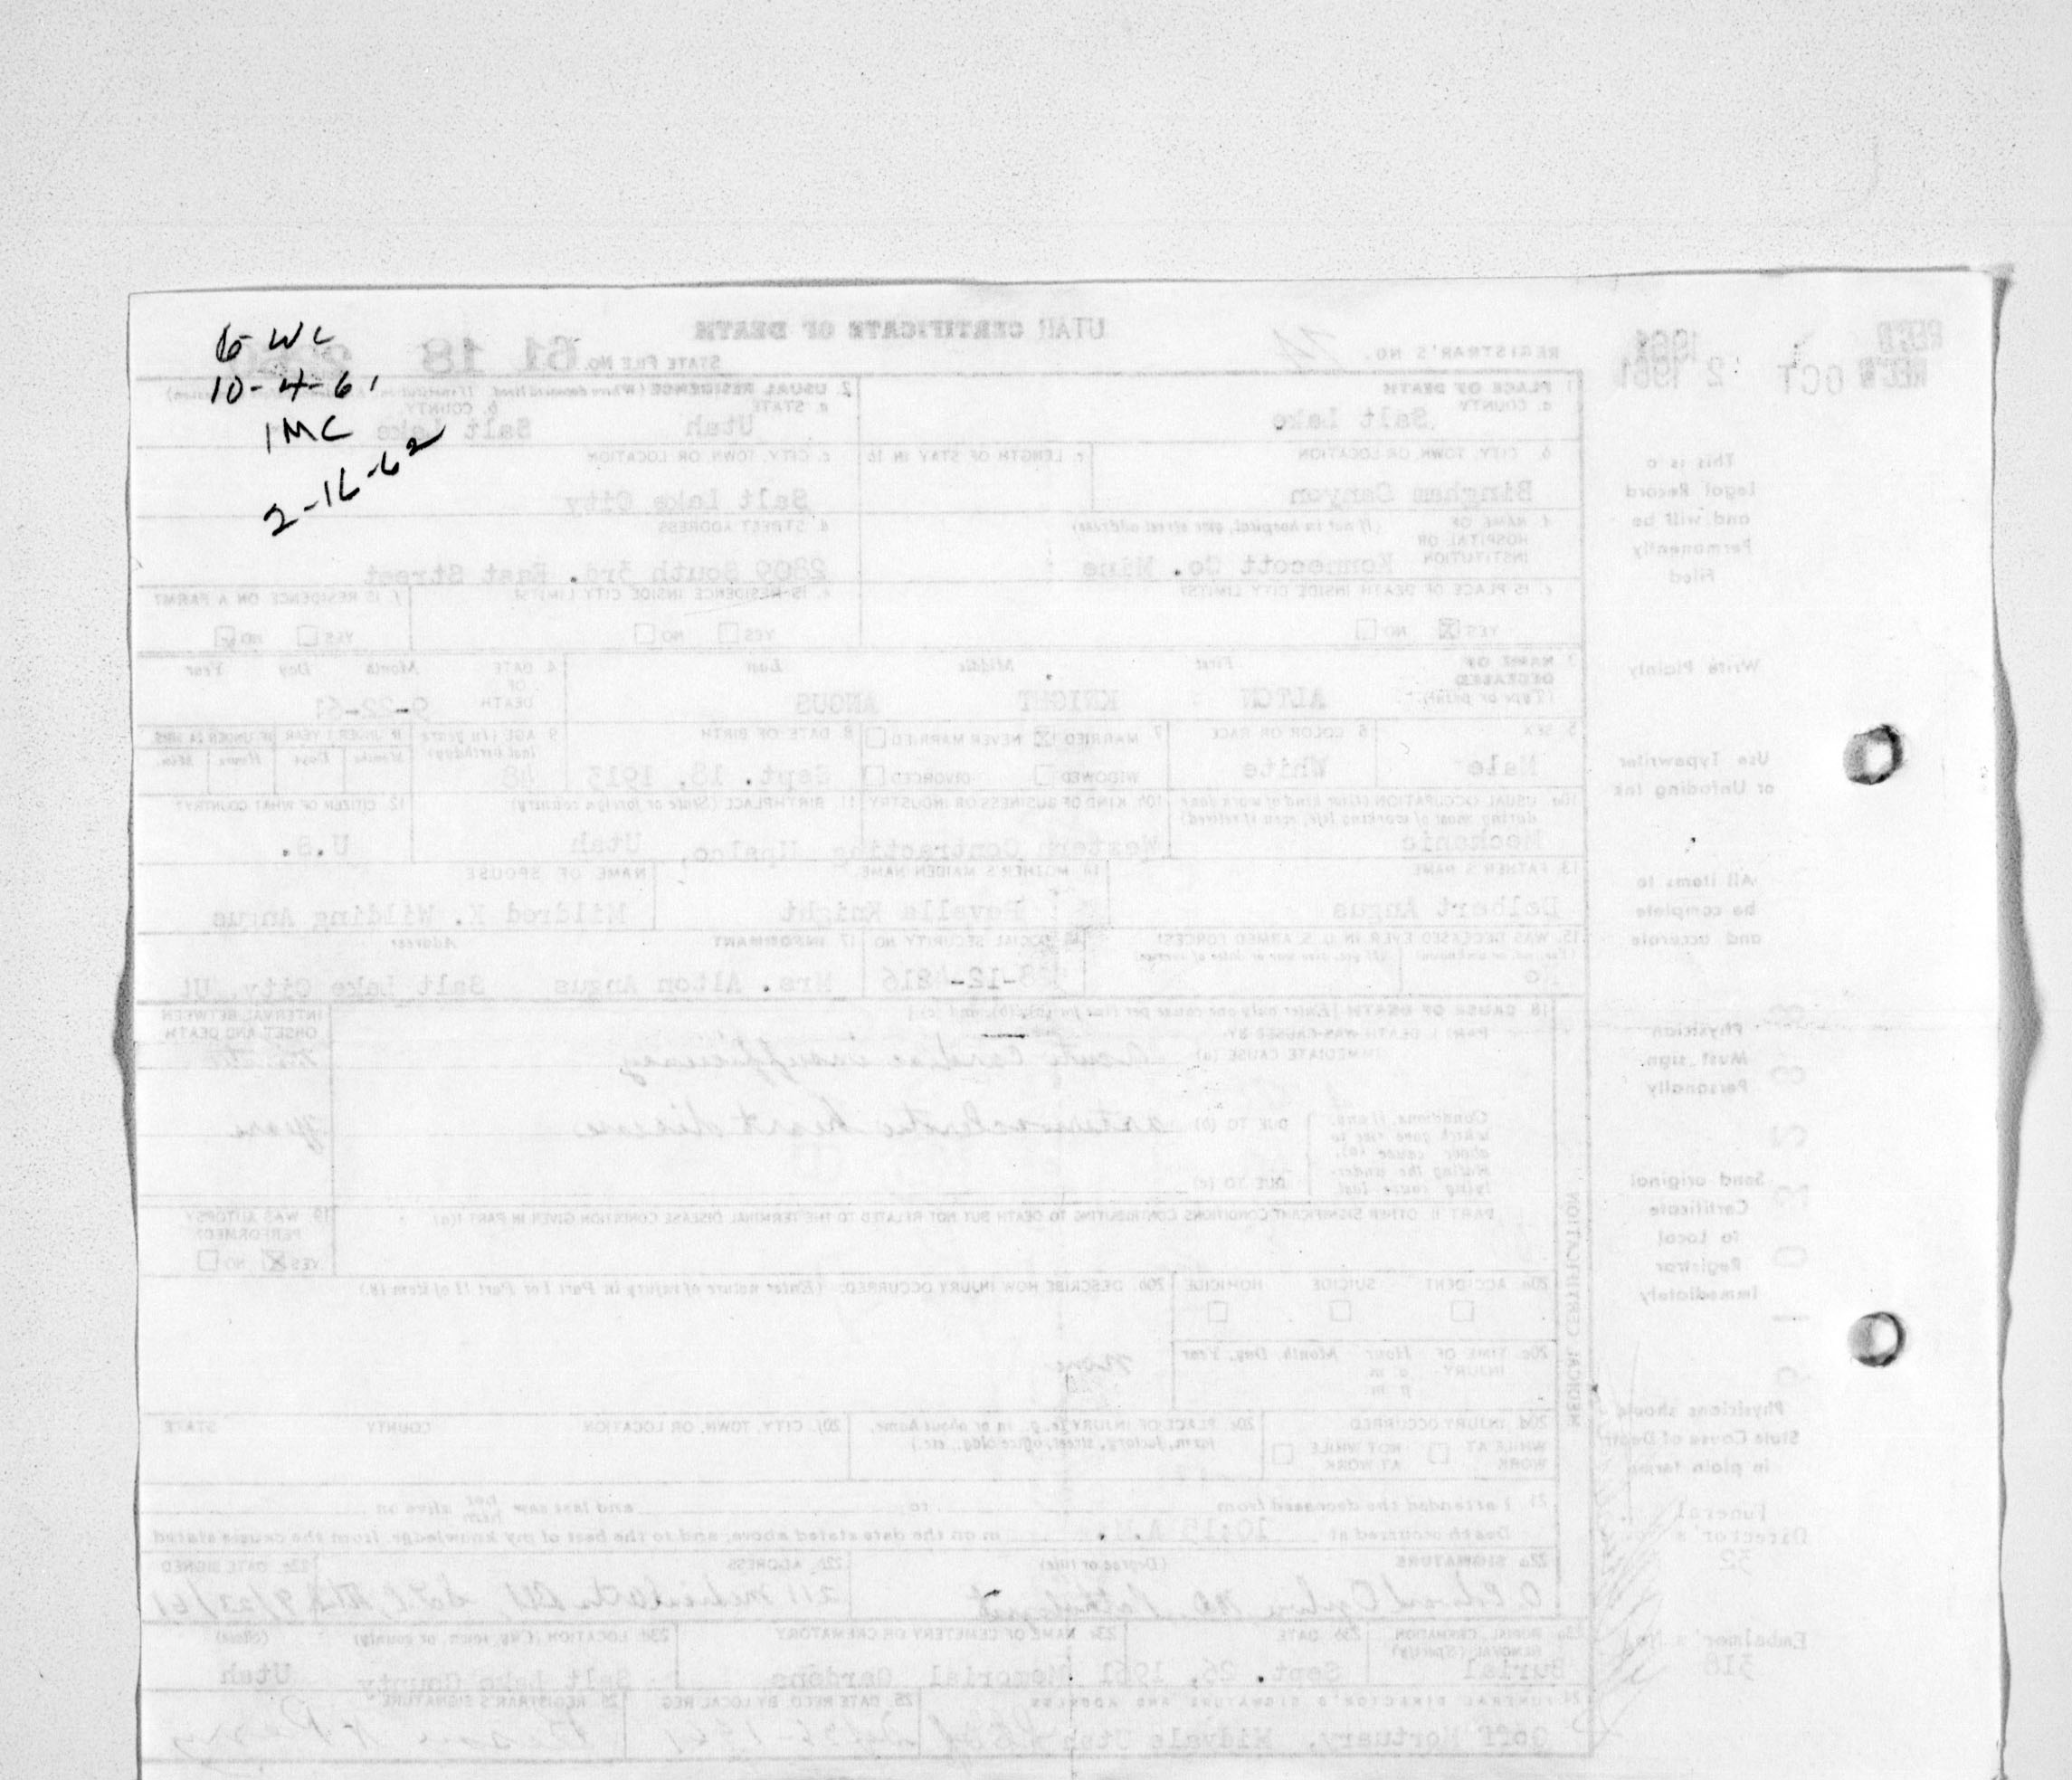 6-WC
10-4-61
1MC
2-16-62
UTAH CERTIFICATE OF DEATH
REGISTRAR'S NO.
STATE FILE NO. 61 18
REC'D OCT 2 1961
1. PLACE OF DEATH
a. COUNTY
Salt Lake
2. USUAL RESIDENCE
a. STATE
Utah
b. COUNTY
Salt Lake
b. CITY, TOWN, OR LOCATION
Bingham Canyon
c. LENGTH OF STAY IN 1b
c. CITY, TOWN, OR LOCATION
Salt Lake City
d. NAME OF HOSPITAL OR INSTITUTION (If not in hospital, give street address)
Kennecott Co. Mine
d. STREET ADDRESS
2809 South 3rd. East Street
e. IS PLACE OF DEATH INSIDE CITY LIMITS?
YES NO
e. IS RESIDENCE INSIDE CITY LIMITS?
YES NO
f. IS RESIDENCE ON A FARM?
YES NO
3. NAME OF DECEASED (Type or print)
First Middle Last
ALTON KNIGHT ANGUS
4. DATE OF DEATH Month Day Year
9-22-61
5. SEX
Male
6. COLOR OR RACE
White
7. MARRIED NEVER MARRIED
WIDOWED DIVORCED
8. DATE OF BIRTH
Sept. 18, 1913
9. AGE (In years last birthday)
48
IF UNDER 1 YEAR IF UNDER 24 HRS.
Months Days Hours Min.
10a. USUAL OCCUPATION (Give kind of work done during most of working life, even if retired)
Mechanic
10b. KIND OF BUSINESS OR INDUSTRY
Western Contracting
11. BIRTHPLACE (State or foreign country)
Upalco, Utah
12. CITIZEN OF WHAT COUNTRY?
U.S.
13. FATHER'S NAME
Delbert Angus
14. MOTHER'S MAIDEN NAME
Knight
NAME OF SPOUSE
Mildred K. Wilding Angus
15. WAS DECEASED EVER IN U. S. ARMED FORCES?
16. SOCIAL SECURITY NO.
17. INFORMANT Address
Mrs. Alton Angus Salt Lake City, Ut
18. CAUSE OF DEATH [Enter only one cause per line for (a), (b), and (c).]
PART I. DEATH WAS CAUSED BY:
IMMEDIATE CAUSE (a) Acute cardiac insufficiency
INTERVAL BETWEEN ONSET AND DEATH
Conditions, if any, which gave rise to above cause (a), stating the underlying cause last.
DUE TO (b) arteriosclerotic heart disease
years
DUE TO (c)
PART II. OTHER SIGNIFICANT CONDITIONS CONTRIBUTING TO DEATH BUT NOT RELATED TO THE TERMINAL DISEASE CONDITION GIVEN IN PART I(a)
19. WAS AUTOPSY PERFORMED?
YES NO
20a. ACCIDENT SUICIDE HOMICIDE
20b. DESCRIBE HOW INJURY OCCURRED. (Enter nature of injury in Part I or Part II of item 18.)
20c. TIME OF INJURY Hour Month, Day, Year
a. m.
p. m.
none
20d. INJURY OCCURRED
WHILE AT WORK NOT WHILE AT WORK
20e. PLACE OF INJURY (e. g., in or about home, farm, factory, street, office bldg., etc.)
20f. CITY, TOWN, OR LOCATION COUNTY STATE
21. I attended the deceased from to and last saw her him alive on
Death occurred at 10:15 A.M. m on the date stated above, and to the best of my knowledge, from the causes stated
22a. SIGNATURE (Degree or title)
22b. ADDRESS
22c. DATE SIGNED
9/23/61
23a. BURIAL, CREMATION, REMOVAL (Specify)
Burial
23b. DATE
Sept. 26, 1961
23c. NAME OF CEMETERY OR CREMATORY
Memorial Gardens
23d. LOCATION (City, town, or county) (State)
Salt Lake County Utah
24. FUNERAL DIRECTOR'S SIGNATURE AND ADDRESS
Goff Mortuary, Midvale Utah
25. DATE RECD. BY LOCAL REG.
26. REGISTRAR'S SIGNATURE
MEDICAL CERTIFICATION
This is a Legal Record and will be Permanently Filed
Write Plainly
Use Typewriter or Unfading Ink
All items to be complete and accurate
Physician Must sign Personally
Send original Certificate to Local Registrar Immediately
Physicians should State Cause of Death in plain terms
Funeral Director's No.
32
Embalmer's No.
318